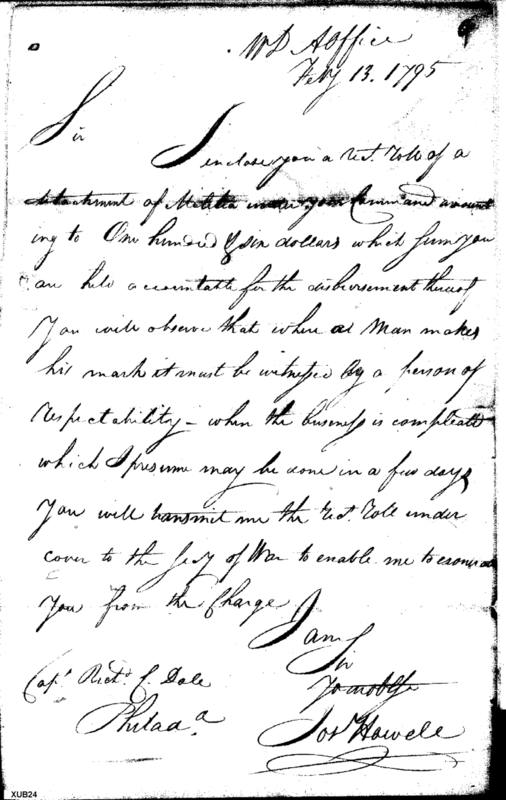 WD AOffice
Feby 13. 1795
Sir
I enclose you a rect. roll of a
detachment of Militia under your Command amount
ing to One hundred & six dollars which sum you
are held accountable for the disbursement thereof
You will observe that where a Man makes
his mark it must be witnessed by a person of
respectability – when the business is compleated
which I presume may be done in a few days
You will transmit me the rect. roll under
cover to the Secy of War to enable me to exonerate
You from the Charge
I am
Sir
Capt. Richd. C. Dale
Philada.
Jos Howell
XUB24